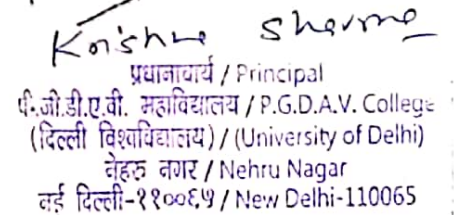 Krishna Sharma
प्रधानाचार्य / Principal
पी.जी.डी.ए.वी. महाविद्यालय / P.G.D.A.V. College
(दिल्ली विश्वविद्यालय) / (University of Delhi)
नेहरु नगर / Nehru Nagar
नई दिल्ली-११००६५ / New Delhi-110065